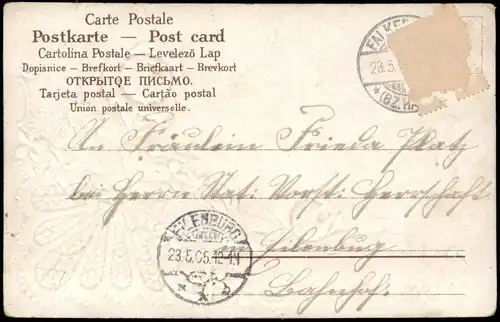 Carte Postale
Postkarte — Post card
Cartolina Postale — Levelező Lap
Dopisnice — Brefkort — Briefkaart — Brevkort
ОТКРЫТОЕ ПИСЬМО.
Tarjeta postal — Cartão postal
Union postale universelle.
FALKENB
23.5.
*(BZ.H
An Fräulein Frieda Platz
bei Herrn Stat: Vorst: Herrschaft
EILENBURG
23.5.05.12-1N
in Eilenburg
Bahnhof.